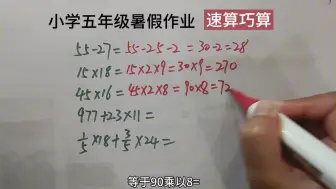 小学五年级暑假作业 速算巧算
55-27=55-25-2=30-2=28
15×18=15×2×9=30×9=270
45×16=45×2×8=90×8=72
977+23×11=
1/5×18+3/5×24=
等于90乘以8=